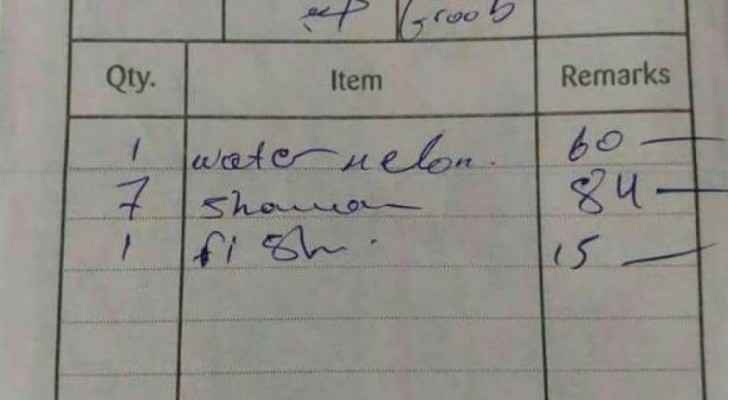 Groob
Qty. Item Remarks
1 watermelon. 60
7 84
1 fish. 15